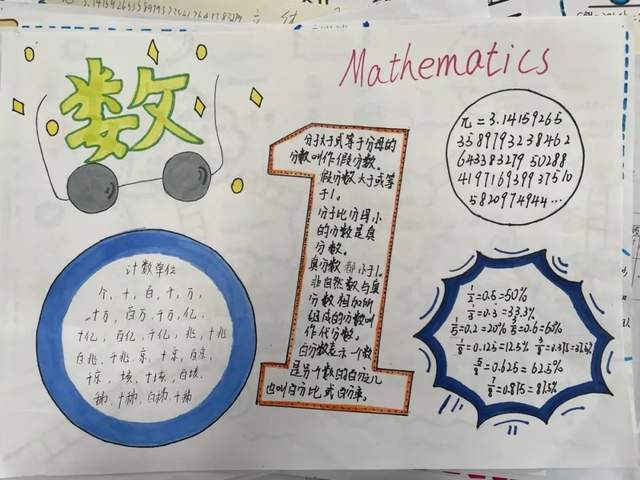 数
Mathematics
分子大于或等于分母的
分数叫作假分数。
假分数大于或等
于1。
分子比分母小
的分数是真
分数。
真分数都小于1。
非自然数与真
分数相加所
组成的分数叫
作代分数。
百分数表示一个数
是另个数的百分之几
也叫百分比或百分率。
π=3.14159265
3589793238462
6433832795 0288
4197169399375 10
5820974944…
计数单位
个、十、百、千、万、
十万、百万、千万、亿、
十亿、百亿、千亿、兆、十兆
百兆、千兆、京、十京、百京、
千京、垓、十垓、百垓、
1/2=0.5=50%
1/3=0.3=33.3%
1/5=0.2=20% 3/5=0.6=60%
1/8=0.125=12.5% 3/8=0.375=37.5%
5/8=0.625=62.5%
7/8=0.875=87.5%